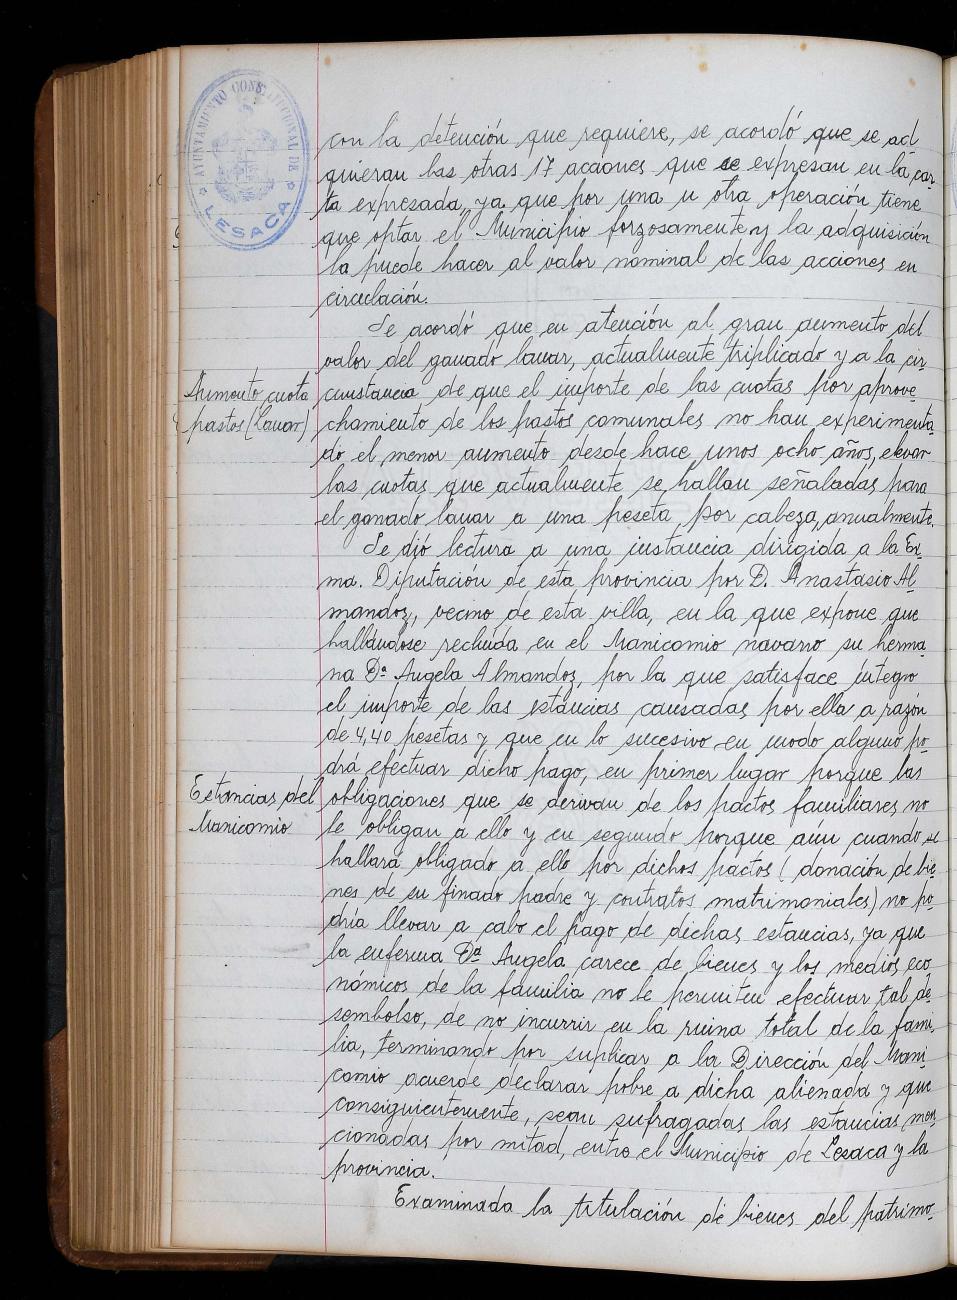 AYUNTAMIENTO CONSTITUCIONAL DE
LESACA
con la detención que requiere, se acordó que se ad
quieran las otras 17 acciones que se expresan en la car-
ta expresada, ya que por una u otra operación tiene
que optar el Municipio forzosamente y la adquisición
la puede hacer al valor nominal de las acciones en
circulación.
Se acordó que en atención al gran aumento del
valor del ganado lanar, actualmente triplicado y a la cir
Aumento cuota
pastos (Lanar)
cunstancia de que el importe de las cuotas por aprove-
chamiento de los pastos comunales no han experimenta-
do el menor aumento desde hace unos ocho años, elevar
las cuotas que actualmente se hallan señaladas para
el ganado lanar a una peseta por cabeza, anualmente.
Se dió lectura a una instancia dirigida a la Ex-
ma. Diputación de esta provincia por D. Anastasio Al-
mandoz, vecino de esta villa, en la que expone que
hallándose recluida en el Manicomio navarro su herma-
na Dª Angela Almandoz, por la que satisface íntegro
el importe de las estancias causadas por ella a razón
de 4,40 pesetas y que en lo sucesivo en modo alguno po-
drá efectuar dicho pago, en primer lugar porque las
Estancias del
Manicomio
obligaciones que se derivan de los pactos familiares, no
le obligan a ello y en segundo porque aún cuando se
hallara obligado a ello por dichos pactos (donación de bie-
nes de su finado padre y contratos matrimoniales) no po-
dría llevar a cabo el pago de dichas estancias, ya que
la enferma Dª Angela carece de bienes y los medios eco
nómicos de la familia no le permiten efectuar tal de-
sembolso, de no incurrir en la ruina total de la fami-
lia, terminando por suplicar a la Dirección del Mani
comio acuerde declarar pobre a dicha alienada y que
consiguientemente, sean sufragadas las estancias men-
cionadas por mitad, entre el Municipio de Lesaca y la
provincia.
Examinada la titulación de bienes del patrimo-